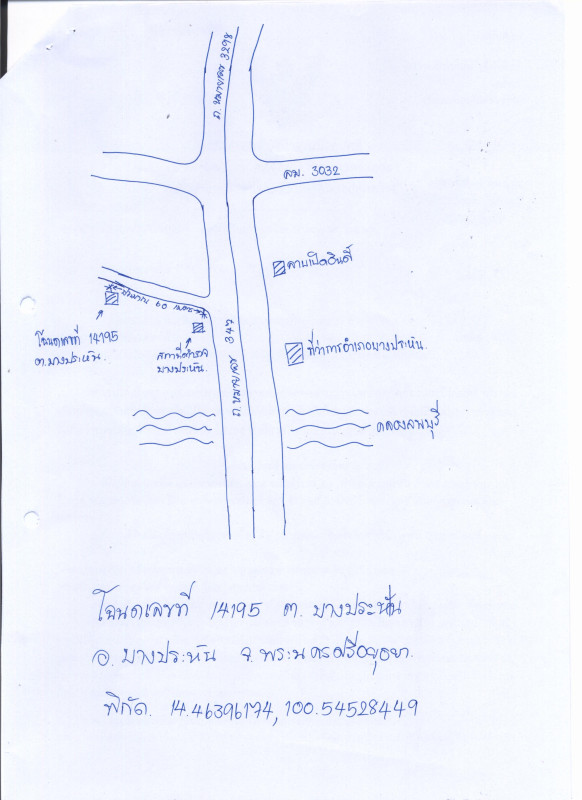 ถ. หมายเลข 3298
ถม. 3032
ประมาณ 60 เมตร
โฉนดเลขที่ 14195
ต. บางประหัน
สถานีตำรวจ
บางประหัน
ถ. หมายเลข 347
ที่ว่าการอำเภอบางประหัน.
คลองลพบุรี
โฉนดเลขที่ 14195 ต. บางประหัน
อ. บางประหัน จ. พระนครศรีอยุธยา.
พิกัด. 14.46396174, 100.54528449